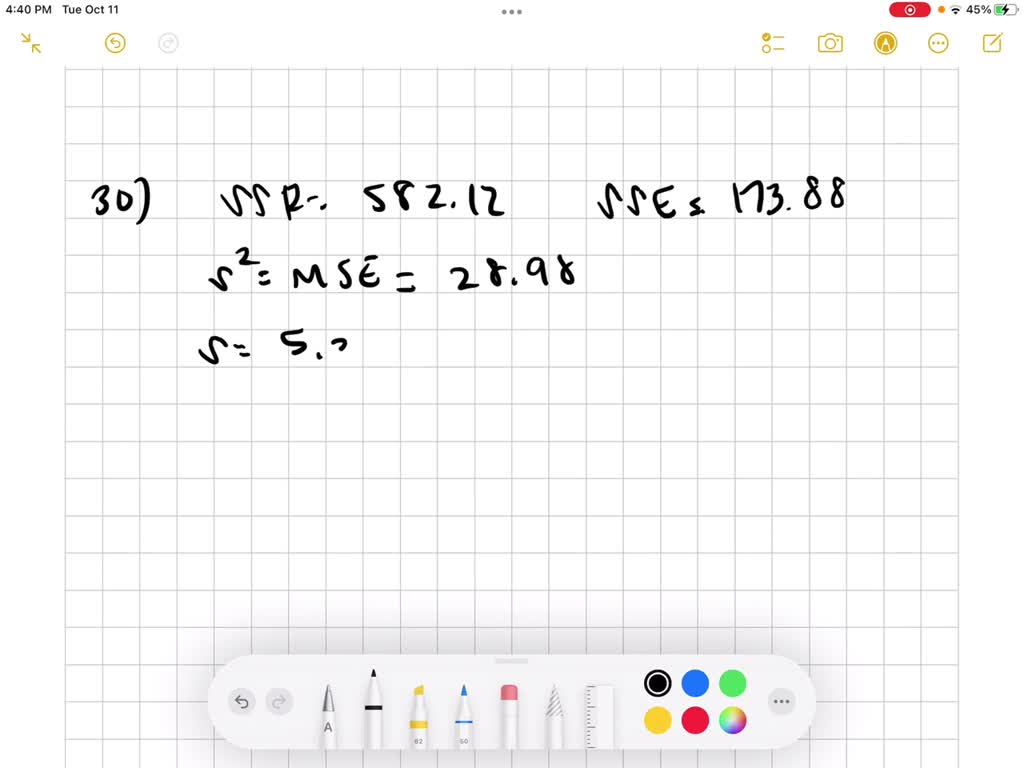 4:40 PM Tue Oct 11 45%
30) SSR = 582.12 SSE = 173.88
s² = MSE = 28.98
s = 5.
A 62 50